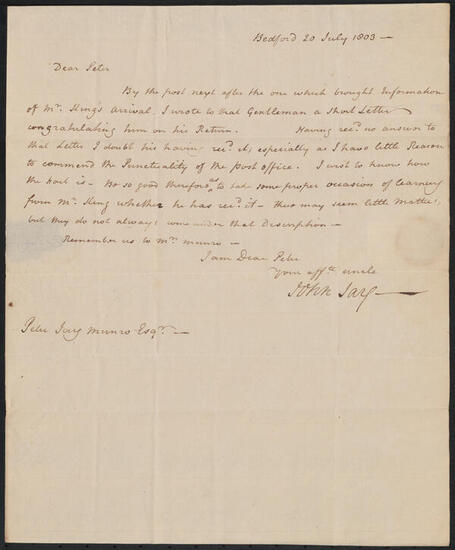 Bedford 20 July 1803 —
Dear Peter
By the post next after the one which brought Information
of Mr. King's arrival, I wrote to that Gentleman a short Letter
congratulating him on his Return. Having recd. no answer to
that Letter I doubt his having recd. it, especially as I have little Reason
to commend the Punctuality of the post office. I wish to know how
the fact is — be so good therefore as to take some proper occasion of learning
from Mr. King whether he has recd. it — these may seem little matters,
but they do not always come under that Description —
Remember us to Mrs. Munro —
I am Dear Peter
Your affte. uncle
John Jay —
Peter Jay Munro Esqr. —